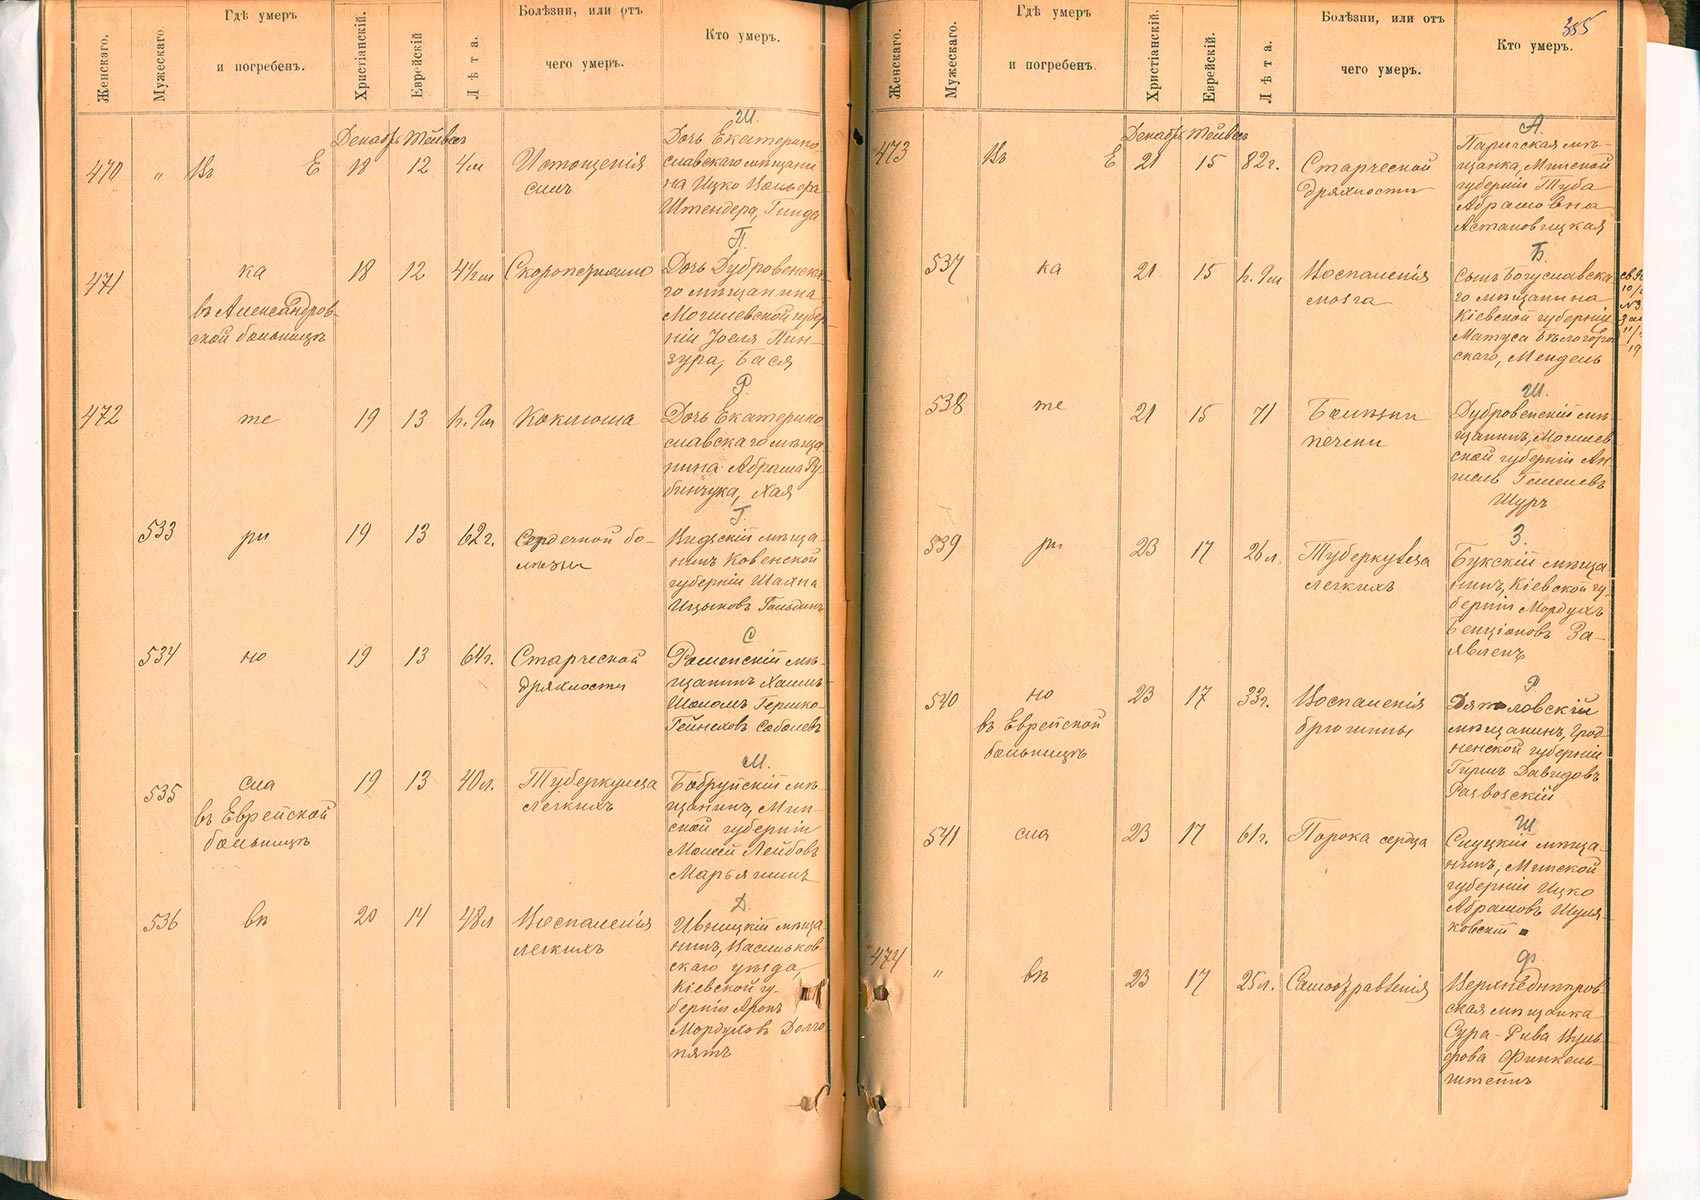 Женскаго.
Мужескаго.
Гдѣ умеръ
и погребенъ.
Христіанскій.
Еврейскій
Лѣта.
Болѣзни, или отъ
чего умеръ.
Кто умеръ.
Декабрь Тейвесъ
Ш.
470 " Въ Е 18 12 4м Истощенія
силъ
Дочь Екатерино
славскаго мѣщани
на Ицко
Штендера, Гинда
П.
471 ка 18 12 4½м Скоропостижно
въ Александров-
ской больницѣ
Дочь Дубровенска
го мѣщанина
Могилевской губер
ніи Іоеля Пин-
зура, Бася
Р.
472 те 19 13 1г. 9м Коклюша
Дочь Екатерино
славскаго мѣща
нина Абрама Ру
бинчука, Хая
Г.
533 ри 19 13 62г. Сердечной бо-
лѣзни
Видзскій мѣща-
нинъ Ковенской
губерніи Шахна
Ицыковъ Гольдинъ
С
534 но 19 13 64г. Старческой
дряхлости
Роменскій мѣ-
щанинъ Хаимъ
Шоломъ Гершко
Гейнеховъ Соболевъ
М.
535 сла 19 13 40л. Туберкулеза
легкихъ
въ Еврейской
больницѣ
Бобруйскій мѣ
щанинъ, Мин-
ской губерніи
Мовшей Лейбовъ
Марьяшинъ
Д.
536 въ 20 14 48л Воспаленія
легкихъ
Ивницкій мѣща-
нинъ, Васильков-
скаго уѣзда,
Кіевской гу-
берніи Аронъ
Мордуховъ Долго
пятъ
355
Женскаго.
Мужескаго.
Гдѣ умеръ
и погребенъ.
Христіанскій.
Еврейскій.
Лѣта.
Болѣзни, или отъ
чего умеръ.
Кто умеръ.
Декабрь Тейвесъ
А.
473 Въ Е 21 15 82г. Старческой
дряхлости
Паричская мѣ-
щанка, Минской
губерніи Туба
Абрамовна
Астановицкая
Б.
537 ка 21 15 1г. 9м Воспаленія
мозга
Сынъ Богуславска
го мѣщанина
Кіевской губерніи
Матуса Бѣлогоро
скаго, Мендель
Ш.
538 те 21 15 71 Болѣзни
печени
Дубровенскій мѣ-
щанинъ, Могилев
ской губерніи Ан
шель Гешелевъ
Шуръ
З.
539 ри 23 17 26л. Туберкулеза
легкихъ
Букскій мѣща
нинъ, Кіевской гу-
берніи Мордухъ
Бенціоновъ За-
явленъ
Р
540 но 23 17 33г. Воспаленія
брюшины
въ Еврейской
больницѣ
Дятловскій
мѣщанинъ, Грод-
ненской губерніи
Гиршъ Давидовъ
Развозскій
Ш
541 сла 23 17 61г. Порока сердца
Слуцкій мѣща-
нинъ, Минской
губерніи Ицко
Абрамовъ Шуля-
ковскій
Ф.
474 " въ 23 17 25л. Самоотравленія
Верхнеднѣпров-
ская мѣщанка
Сура-Рива
Финкель-
штейнъ